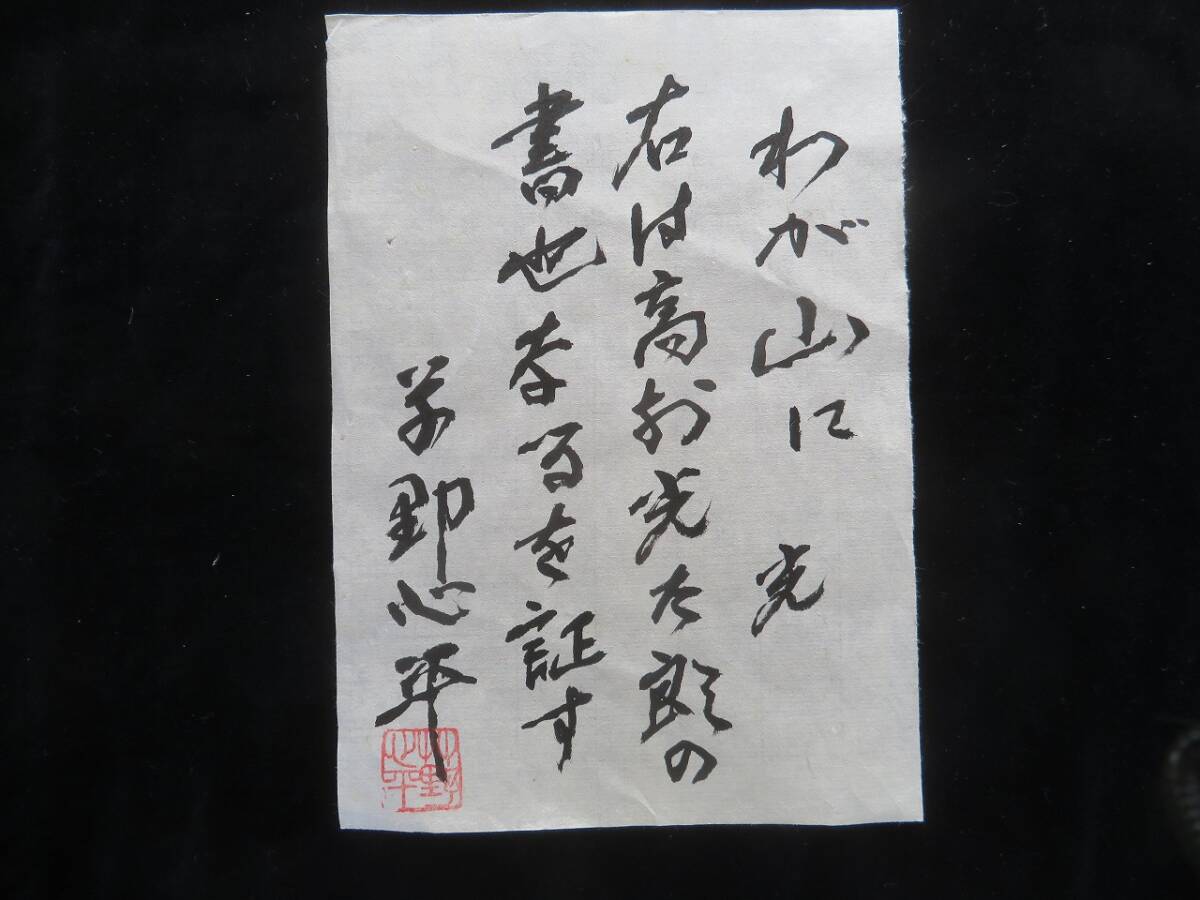 わが山に　光
右は高村光太郎の
書也なるを証す
草野心平
草野
心平